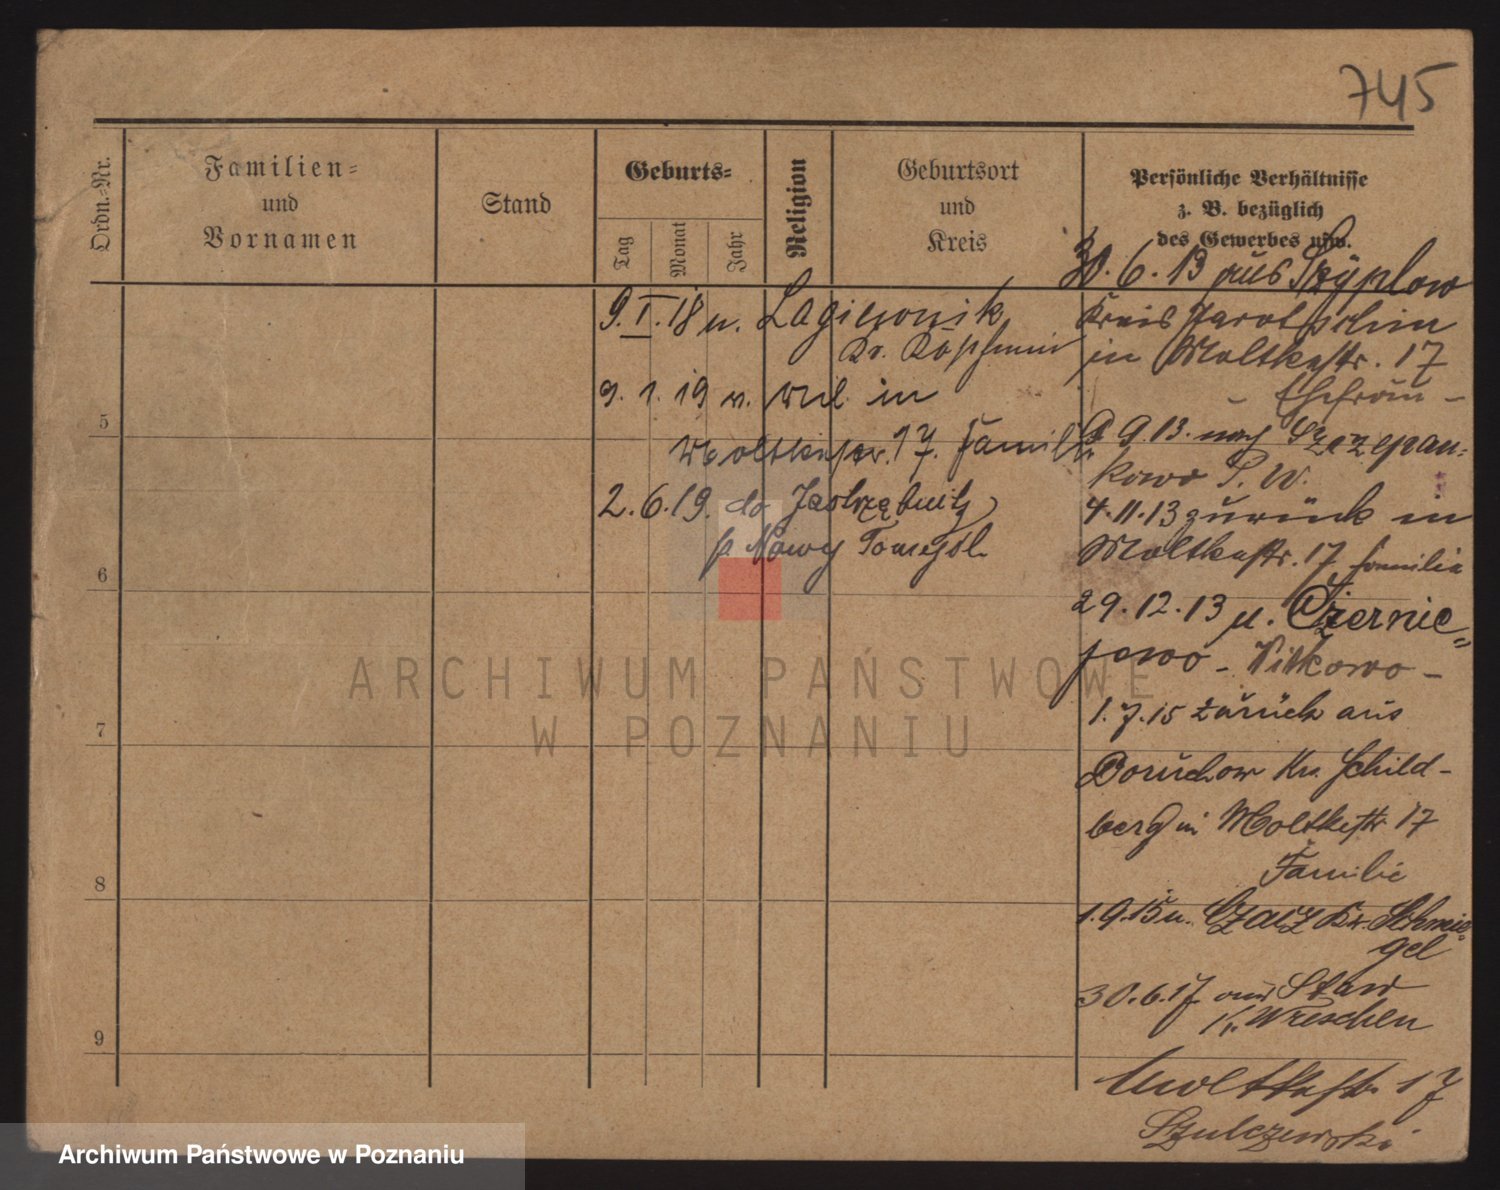 745
Ordn.-Nr.
Familien-
und
Vornamen
Stand
Geburts-
Tag
Monat
Jahr
Religion
Geburtsort
und
Kreis
Persönliche Verhältnisse
z. B. bezüglich
des Gewerbes usw.
30. 6. 13 aus Szyplow
Kreis Jarotschin
in Moltkestr. 17
- Ehefrau -
9. 13. nach Szczepan-
kowo P. W.
4. 11. 13 zurück in
Moltkestr. 17 Familie
29. 12. 13 u. Czernie-
jewo - Witkowo -
1. 7. 15 zurück aus
Doruchow Kr. Schild-
berg in Moltkestr 17
Familie
1. 9. 15 u. Czacz Kr. Schmie-
gel
30. 6. 17 aus Staw
Kr. Wreschen
Moltkestr. 17
Szulczewski
9. I. 18 u. Lagiewnik
Kr. Koschmin
9. 1. 19 v. in
Moltkestr. 17. Familie
2. 6. 19. do Jastrzębnik
p Nowy Tomysl
5
6
7
8
9
ARCHIWUM PAŃSTWOWE
W POZNANIU
Archiwum Państwowe w Poznaniu